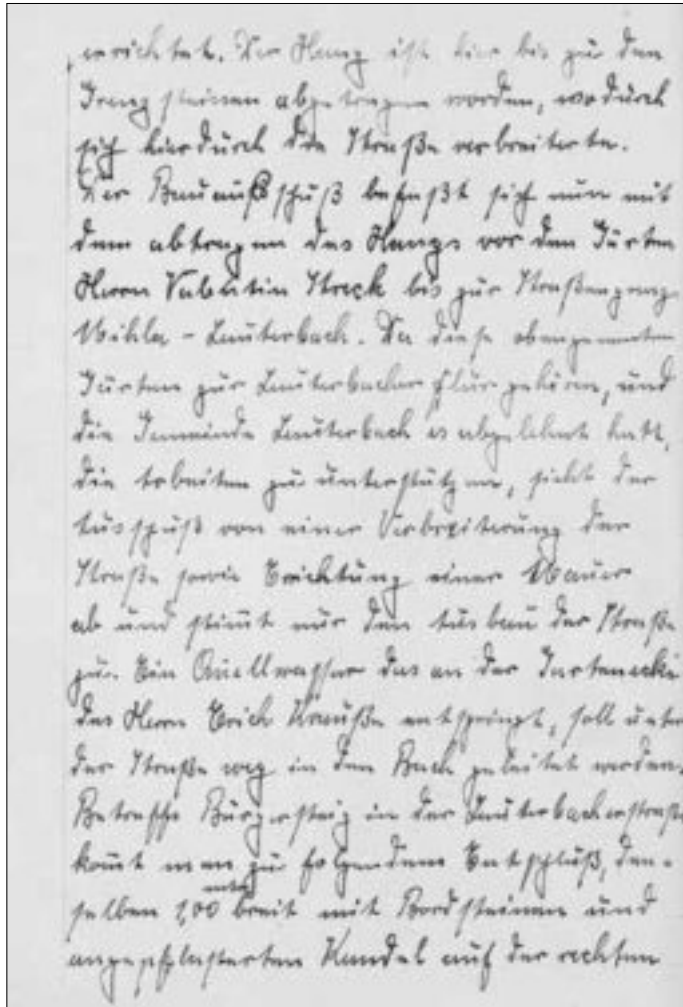 errichtet. Der Hang ist hier bis zu den
Grenzsteinen abgetragen worden, wodurch
sich hierdurch die Straße verbreiterte.
Der Bauausschuß befaßt sich nun mit
dem abtragen des Hangs vor den Gärten
Herrn Valentin Streck bis zur Straßengrenze
Mihla - Lauterbach. Da diese obengenannten
Gärten zur Lauterbacher Flur gehören, und
die Gemeinde Lauterbach es abgelehnt hatt,
die Arbeiten zu unterstützen, sieht der
Ausschuß von einer Verbreiterung der
Straße sowie Errichtung einer Mauer
ab und stimt nur den Ausbau der Straße
zu. Ein Quellwasser das an der Gartenecke
des Herrn Erich Krauße entspringt, soll unter
der Straße weg in den Bach geleitet werden.
Betreffs Bürgersteig in der Lauterbacherstraße
komt man zu folgendem Entschluß, den-
selben 1,00 mtr breit mit Bordsteinen und
angepflasterten Kandel auf der rechten